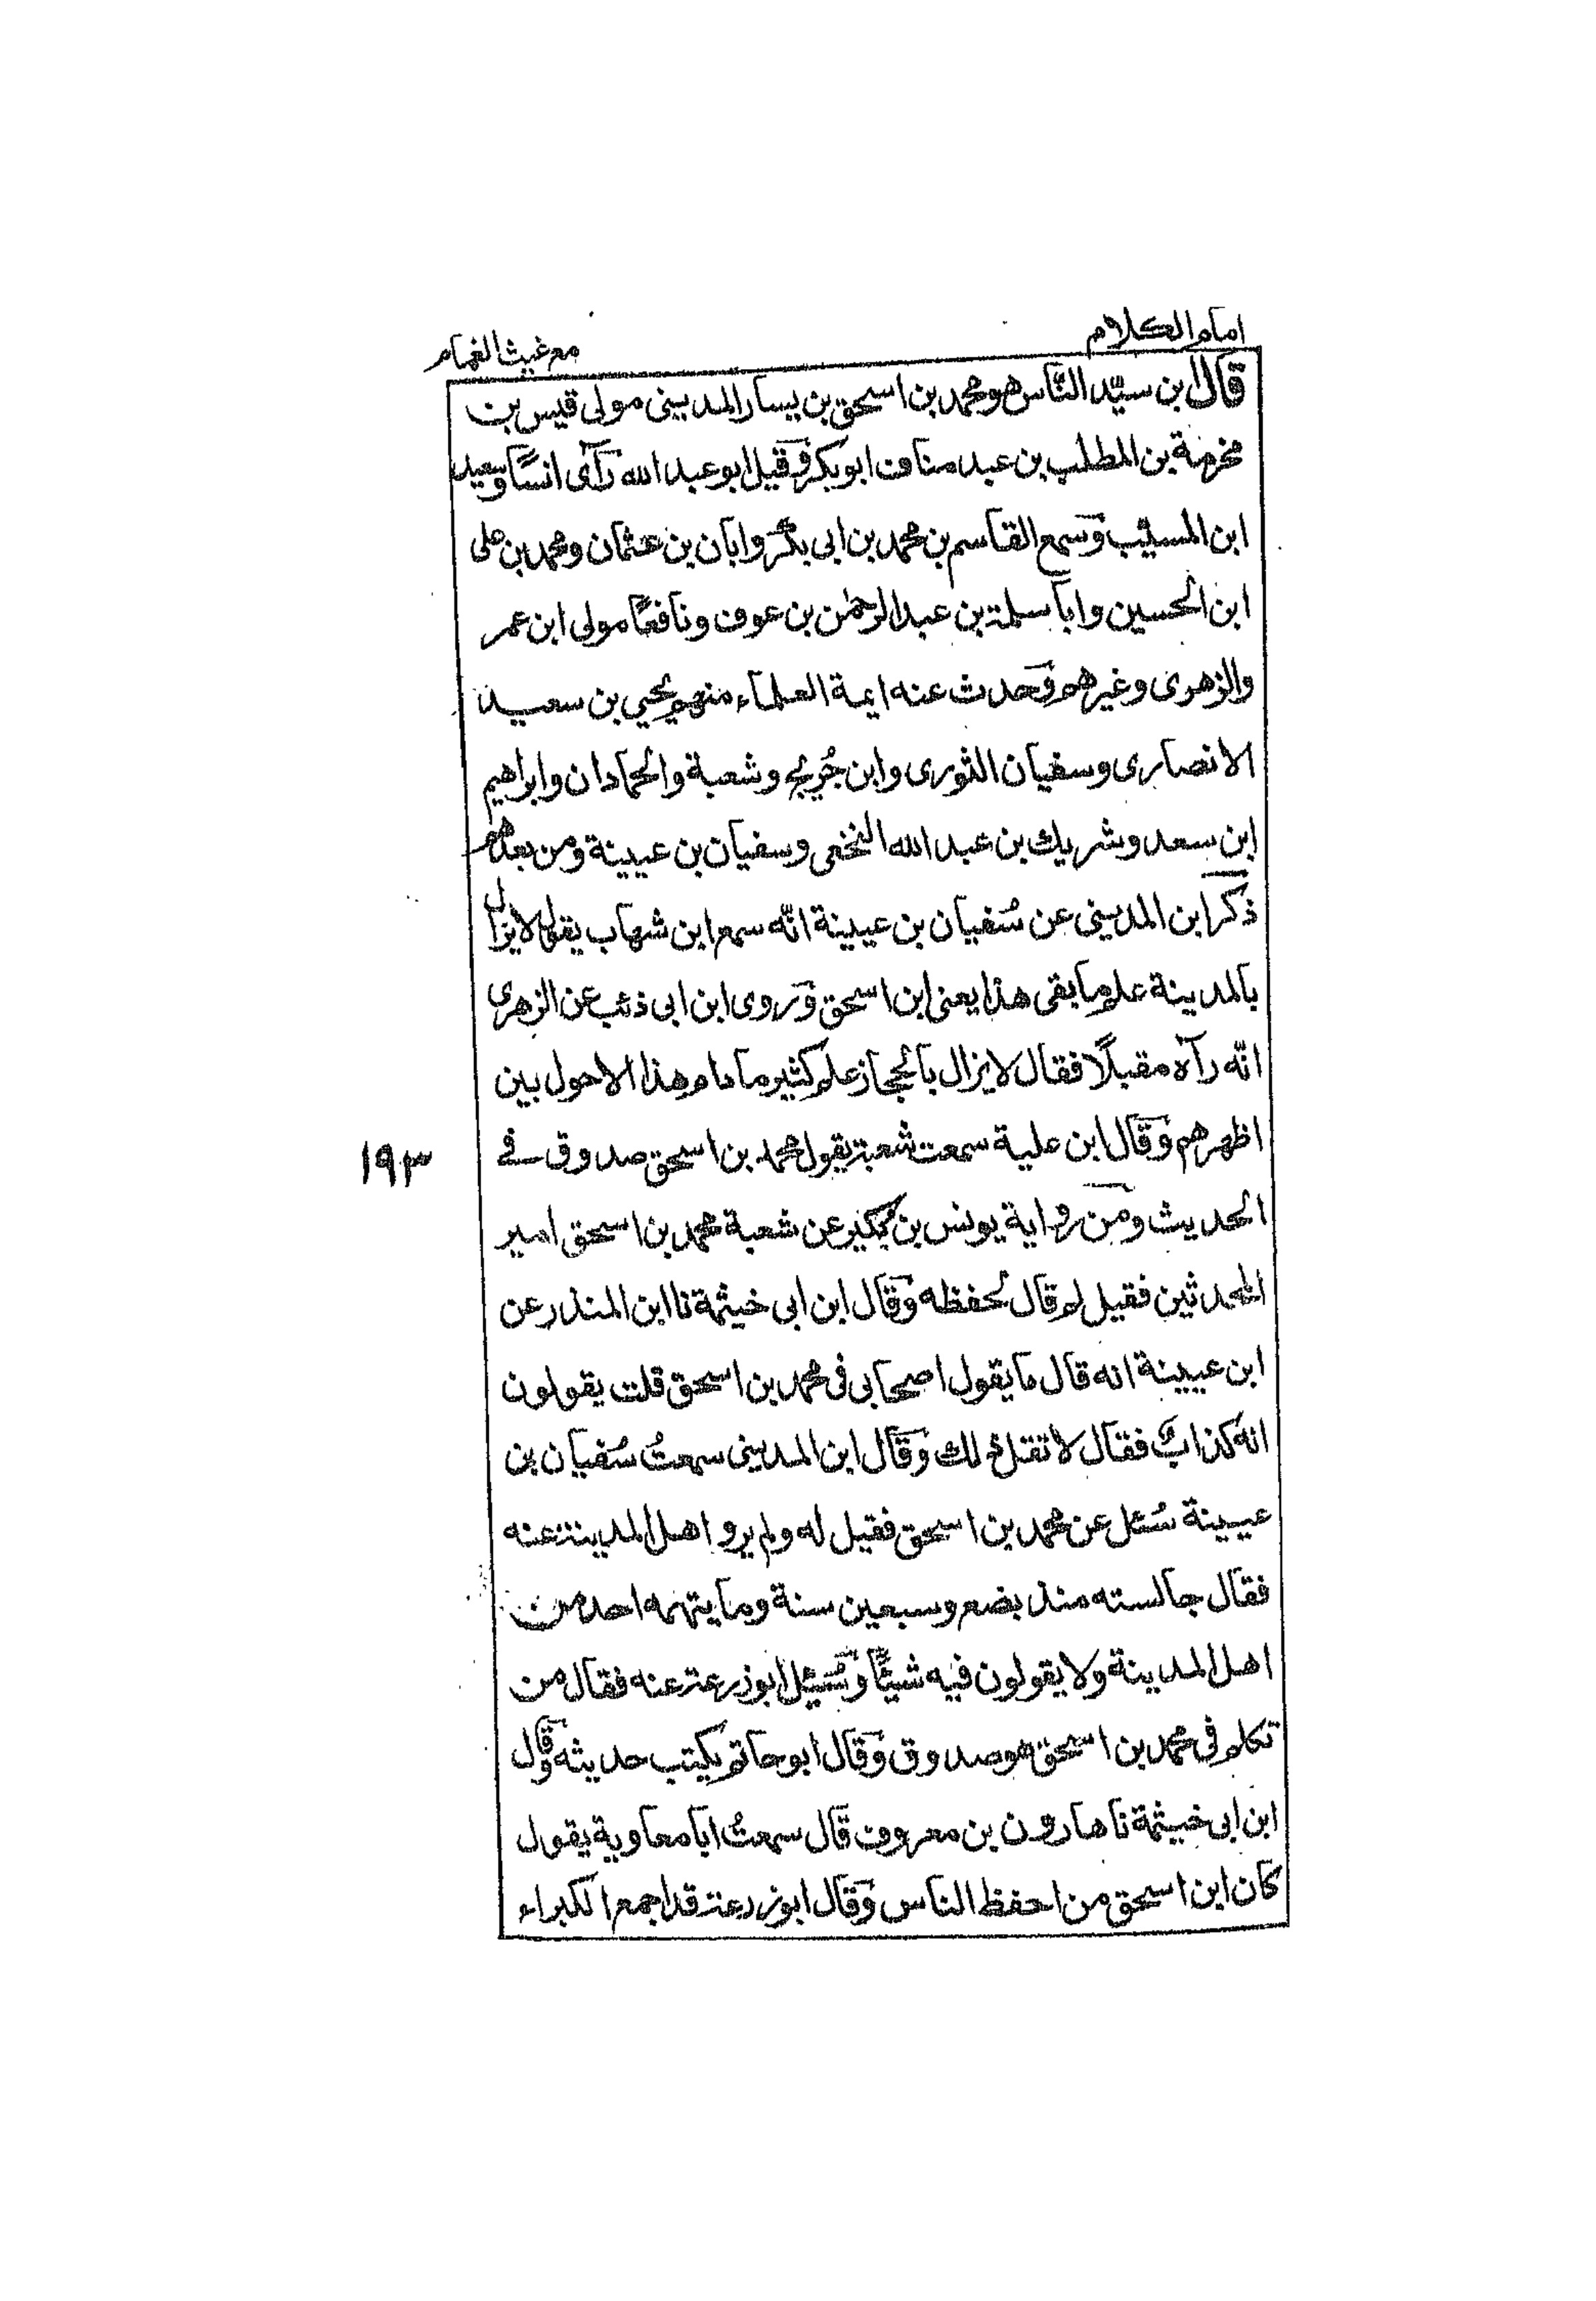 امام الكلام
مع غيث الغمام
قال ابن سيّد النّاس هو محمد بن اسحق بن يسار المديني مولى قيس بن
مخرمة بن المطلب بن عبد مناف ابو بكر وقيل ابو عبد الله رأى انسًا وسعيد
ابن المسيّب وسمع القاسم بن محمد بن ابى بكر وابان بن عثمان ومحمد بن على
ابن الحسين وابا سلمة بن عبد الرحمٰن بن عوف ونافعًا مولى ابن عمر
والزهرى وغيرهم وحدث عنه ايمة العلماء منهم يحيي بن سعيد
الانصارى وسفيان الثورى وابن جُريج وشعبة والحمادان وابراهيم
ابن سعد وشريك بن عبد الله النخعى وسفيان بن عيينة ومن بعدهم
ذكر ابن المديني عن سُفيان بن عيينة انّه سمع ابن شهاب يقول لا يزال
بالمدينة علم ما بقى هذا يعنى ابن اسحق وروى ابن ابى ذئب عن الزهرى
انّه رآه مقبلًا فقال لا يزال بالحجاز علم كثير ما دام هذا الاحول بين
اظهرهم وقال ابن علية سمعت شعبة يقول محمد بن اسحق صدوق فے
١٩٣
الحديث ومن رواية يونس بن بكير عن شعبة محمد بن اسحق امير
المحدثين فقيل لم قال لحفظه وقال ابن ابى خيثمة نا ابن المنذر عن
ابن عيينة انه قال ما يقول اصحابى فى محمد بن اسحق قلت يقولون
انه كذابٌ فقال لا تقل ذلك وقال ابن المدينى سمعتُ سُفيان بن
عيينة سُئل عن محمد بن اسحق فقيل له ولم يرو اهل المدينة عنه
فقال جالسته منذ بضع وسبعين سنة وما يتهمه احد من
اهل المدينة ولا يقولون فيه شيئًا وسُئِل ابو زرعة عنه فقال من
تكلم فى محمد بن اسحق هو صدوق وقال ابو حاتم يكتب حديثه وقال
ابن ابى خيثمة نا هارون بن معروف قال سمعتُ ابا معاوية يقول
كان ابن اسحق من احفظ الناس وقال ابو زرعة قد اجمع الكبراء